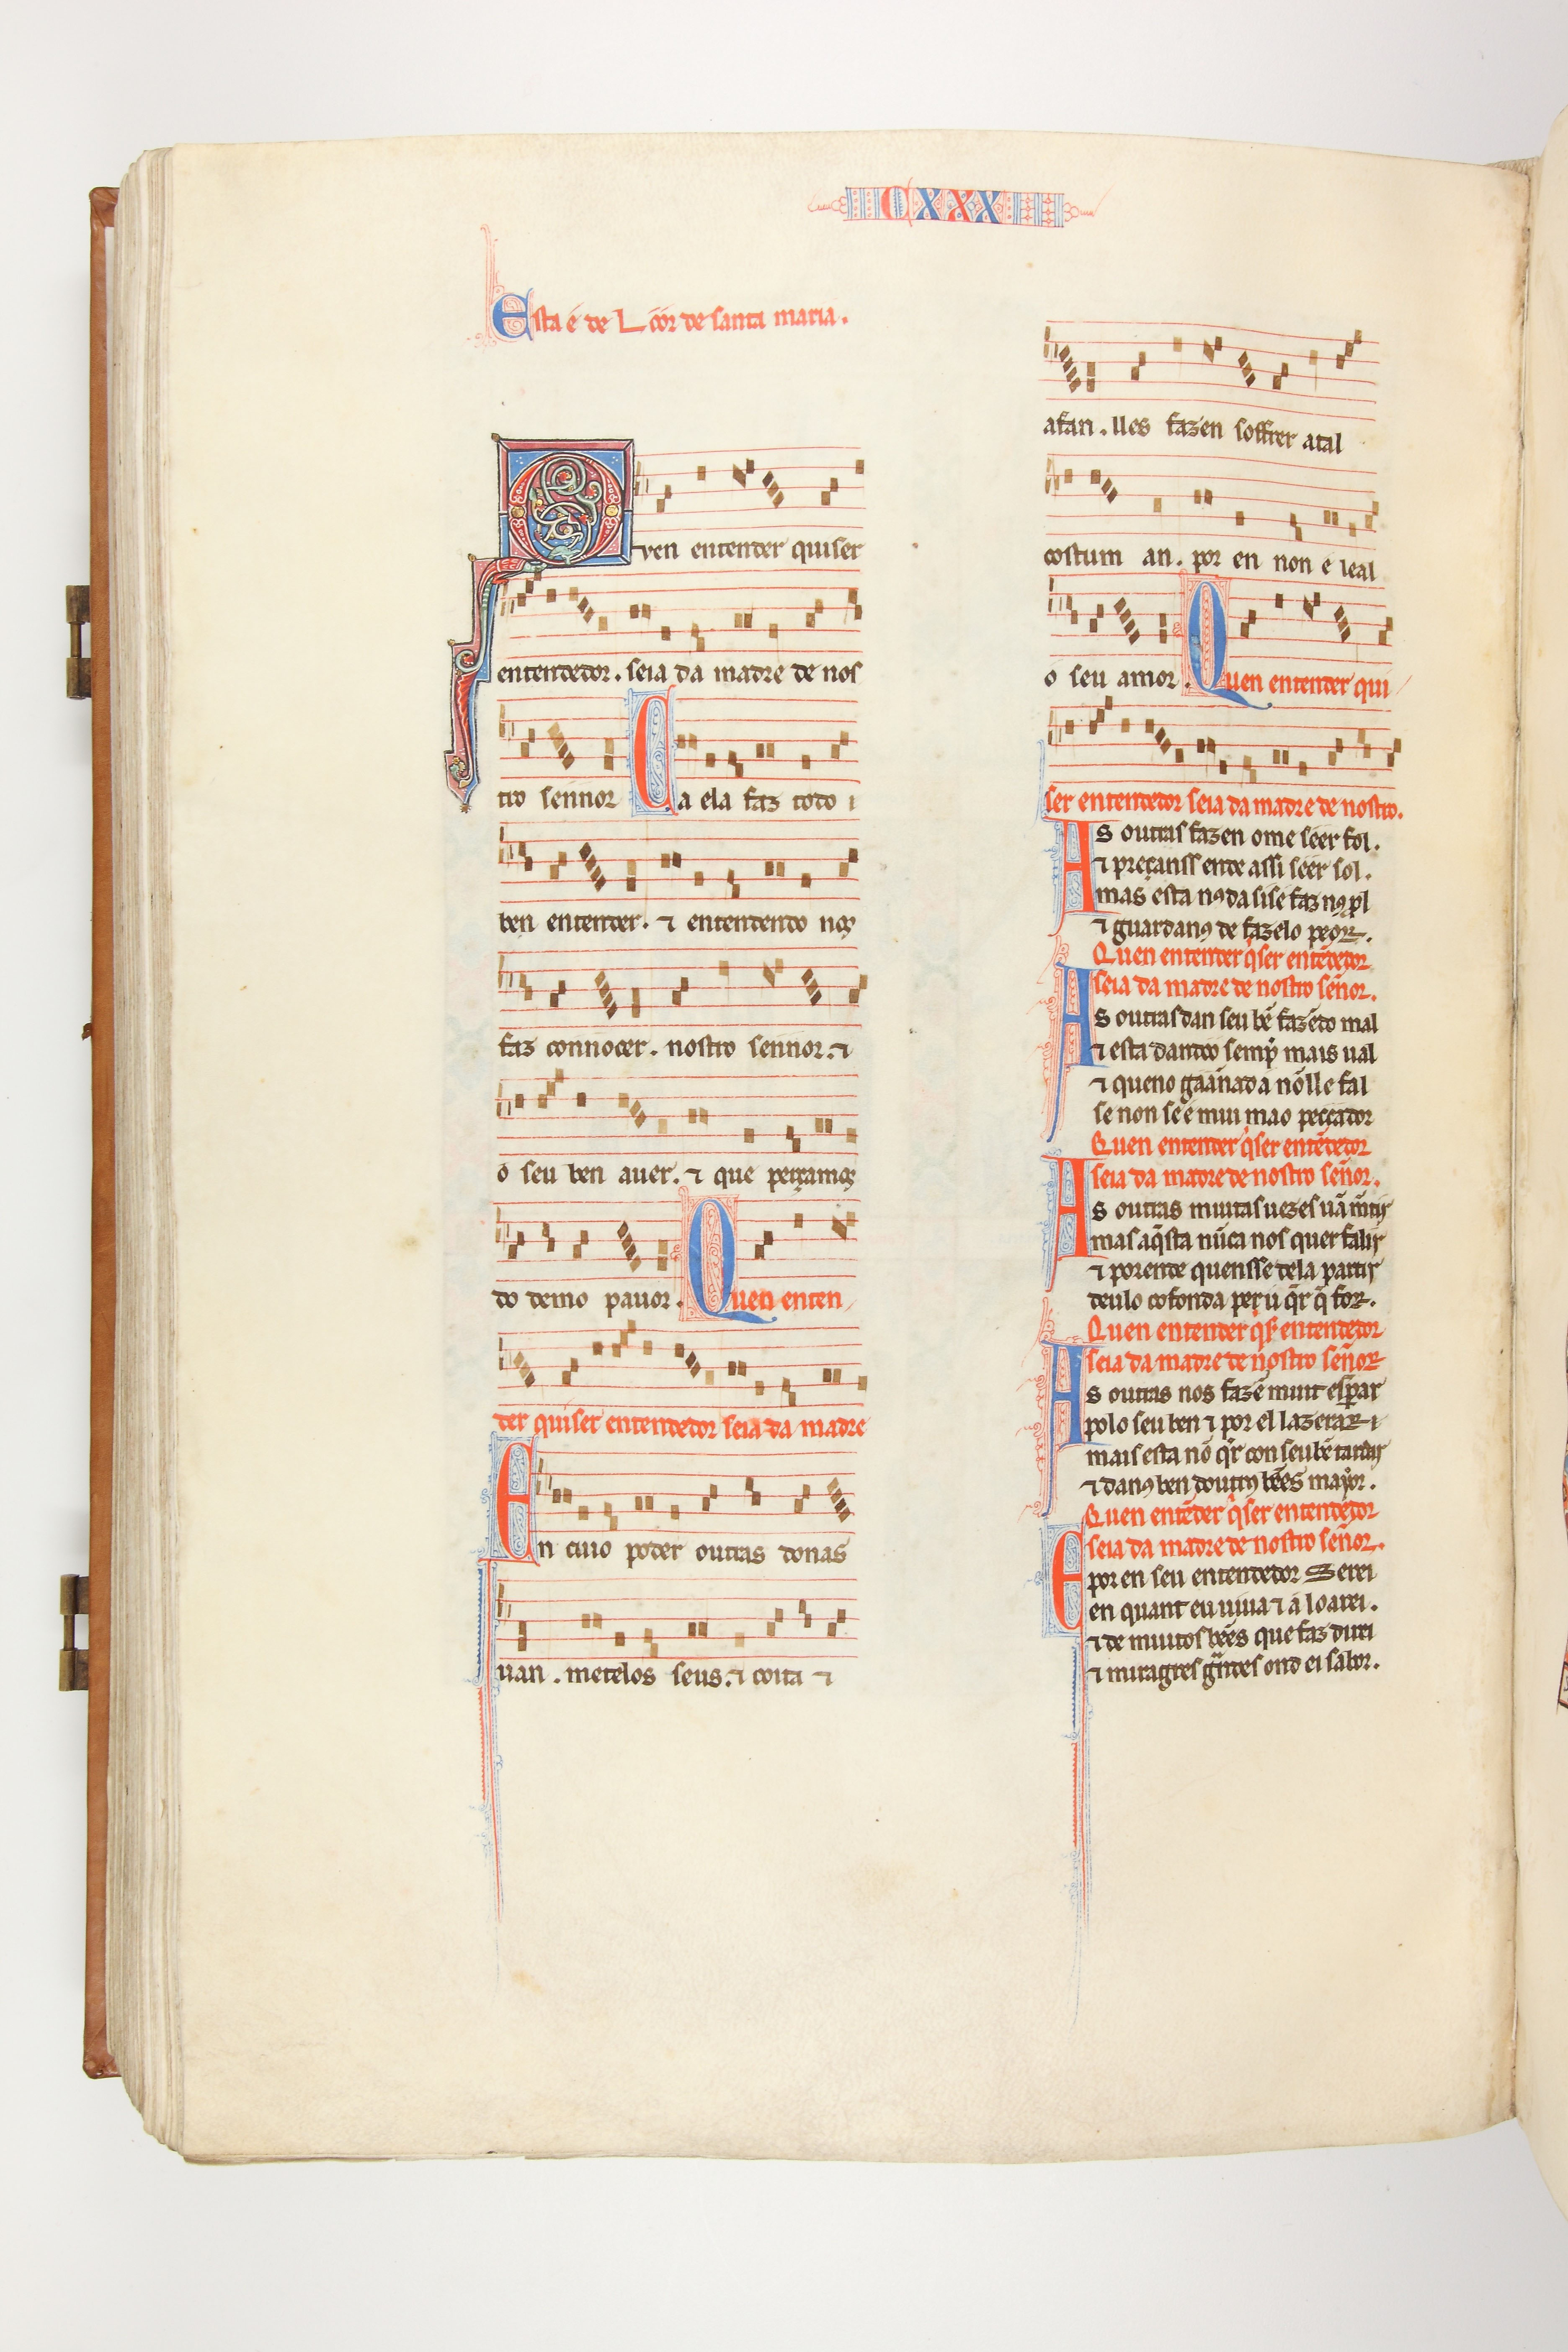 CXXX
Esta é de Loor de santa maria.
Quen entender quiser
entendedor. seia da madre de nos
tro sennor Ca ela faz todo
ben entender. ⁊ entendendo nos
faz connocer. nostro sennor. ⁊
o seu ben auer. ⁊ que perçamos
do demo pauor. Quen enten
der quiser entendedor seia da madre
En cuio poder outras donas
uan. metelos seus. ⁊ coita ⁊
afan. lles fazen soffrer atal
costum an. por en non é leal
o seu amor. Quen entender qui
ser entendedor seia da madre de nostro.
As outras fazen ome seer fol.
⁊ preçanss ende assi seer sol.
mas esta nꝯ da siso ⁊ faz nꝯ pl
⁊ guardanꝯ de fazelo peor.
Quen entender q̇ser entēdedor
seia da madre de nostro señor.
As outras dan seu bē fazēdo mal
⁊ esta dando o semp̄ mais ual
⁊ queno gaannada nō lle fal
se non se é mui mao peccador
Quen entender q̇ser entēdedor
seia da madre de nostro señor.
As outras muitas uezes uā mētir
mas aq̄sta nūca nos quer falir
⁊ porende quensse dela partir
deulo cofonda per u q̄r q̄ for.
Quen entender q̇sr̄ entendedor
seia da madre de nostro señor
As outras nos fazē muit esꝑar
polo seu ben ⁊ por el lazerar
mais esta nō q̄r con seu bē tardar
⁊ danꝯ ben doutrꝯ bēes mayor.
Quen entēder q̇ser entendedor
seia da madre de nostro señor.
E por en seu entendedor Serei
en quant eu uiua ⁊ a loarei.
⁊ de muitos bēes que faz direi
⁊ miragres grādes ond ei sabor.